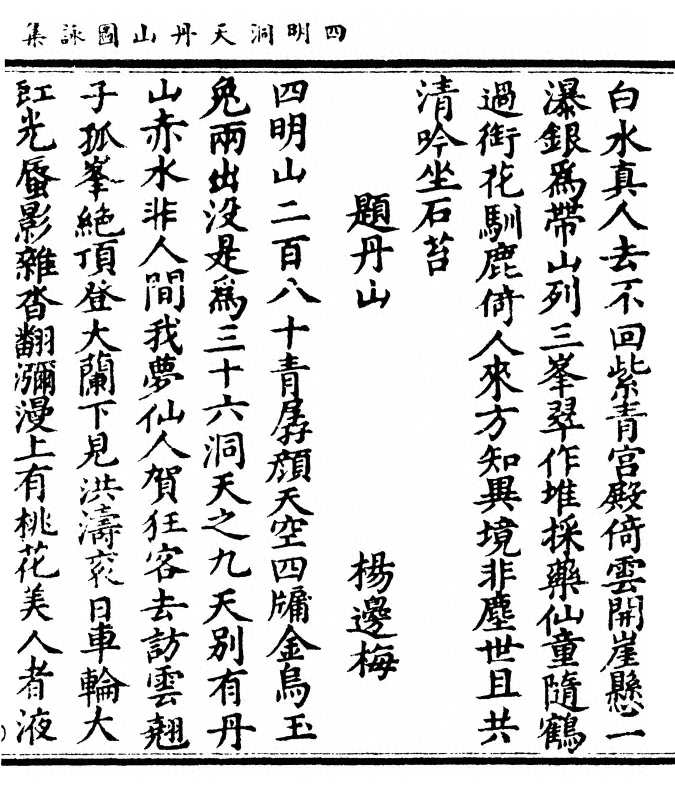 四明洞天丹山圖詠集
白水真人去不回紫青宮殿倚雲開崖懸一
瀑銀爲帶山列三峯翠作堆採藥仙童隨鶴
過銜花馴鹿倚人來方知異境非塵世且共
清吟坐石苔
題丹山 楊邊梅
四明山二百八十青孱顔天空四牖金烏玉
兔兩出没是爲三十六洞天之九天別有丹
山赤水非人間我夢仙人賀狂客去訪雲翹
子孤峯絶頂登大蘭下見洪濤衮日車輪大
缸光蜃影雜沓翻瀰漫上有桃花美人者液